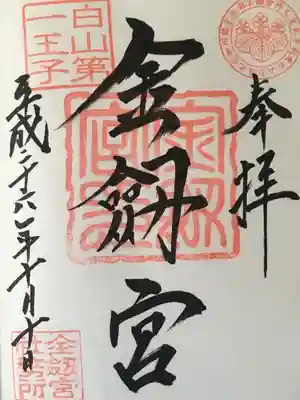 奉拝
白山第
一王子
金劔宮
平成二十六年十月十日
金劔宮
社務所